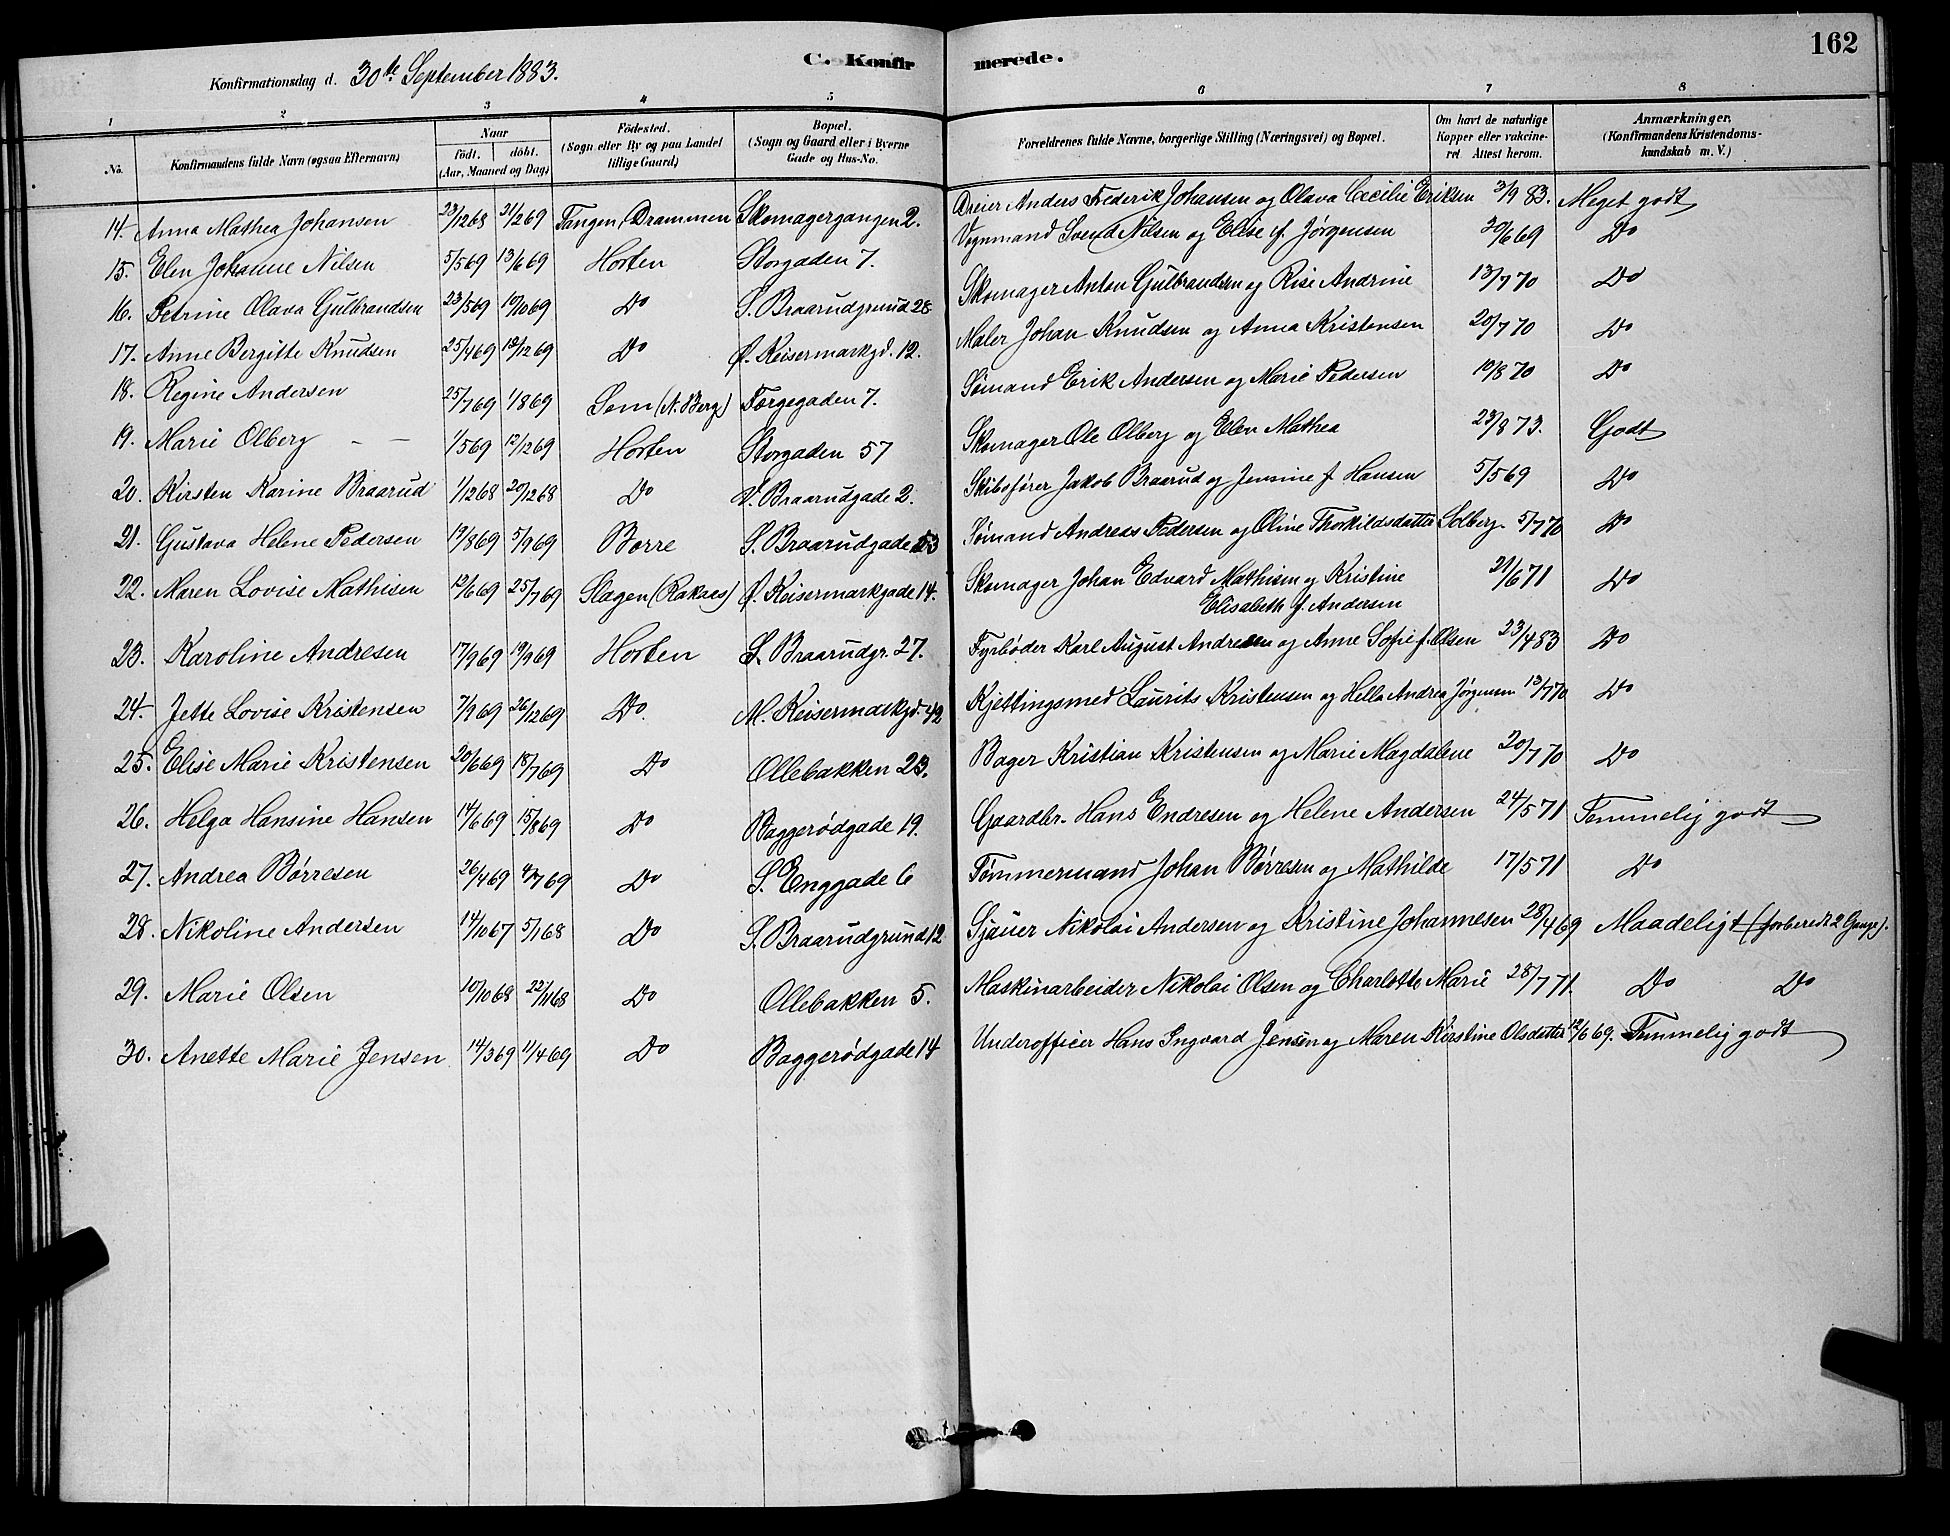 162
C. Konfirmerede.
Konfirmationsdag d. 30te September 1883.
1 2 3 4 5 6 7 8
No. Konfirmandens fulde Navn (ogsaa Efternavn) Naar født. døbt. (Aar, Maaned og Dag) Födested. (Sogn eller By og paa Landet tillige Gaard) Bopæl. (Sogn og Gaard eller i Byerne Gade og Hus-No. Forældrenes fulde Navne, borgerlige Stilling (Næringsvei) og Bopæl. Om havt de naturlige Kopper eller vakcineret Attest herom. Anmærkninger. (Konfirmandens Kristendomskundskab m. V.)
14. Anna Mathea Johansen 23/1268 31/269 Tangen (Drammen Skomagergangen 2. Dreier Anders Frederik Johansen og Olava Cæcilie Eriksen 3/9 83. Meget godt
15. Elen Johanne Nilsen 5/569 13/669 Horten Storgaden 7. Vognmand Svend Nilsen og Elise f. Jørgensen 30/669 Do
16. Petrine Olava Gulbrandsen 23/569 10/1069 Do S. Braarudgrund 28 Skomager Anton Gulbrandsen og Rise Andrine 13/770 Do
17. Anne Bergitte Knudsen 25/469 18/1269 Do Ø. Keisermarkgd. 12. Maler Johan Knudsen og Anna Kristensen 20/770 Do
18. Regine Andersen 25/769 1/869 Sem (N. Berg) Torgegaden 7. Sømand Erik Andersen og Marie Pedersen 10/870 Do
19. Marie Olberg – – 1/569 12/1269 Horten Storgaden 57 Skomager Ole Olberg og Elen Mathea 23/873. Godt
20. Kirsten Karine Braarud 1/1268 20/1268 Do V. Braarudgade 2. Skibsfører Jakob Braarud og Jensine f Hansen 5/569 Do
21. Gustava Helene Pedersen 19/869 5/969 Borre S. Braarudgade 53 Sømand Andreas Pedersen og Oline Thorkildsdatter Solberg 5/770 Do
22. Maren Lovise Mathisen 12/669 25/769 Slagen (Rakaas) Ø. Keisermarkgade 14. Skomager Johan Edvard Mathisen og Kristine Elisabeth f. Andersen 21/671 Do
23. Karoline Andresen 17/969 19/969 Horten S. Braarudgr. 27. Fyrbøder Karl August Andresen og Anne Sofie f. Olsen 23/483 Do
24. Jette Lovise Kristensen 7/969 26/1269 Do. M. Keisermarkgd. 42 Kjettingsmed Laurits Kristensen og Hella Andrea Jørgensen 13/770 Do
25. Elise Marie Kristensen 20/669 18/769 Do Ollebakken 23. Bager Kristian Kristensen og Marie Magdalene 20/770 Do
26. Helga Hansine Hansen 14/669 15/869 Do Baggerødgade 19. Gaardbr. Hans Endresen og Helene Andersen 24/571 Temmelig godt
27. Andrea Børresen 26/469 4/769 Do S. Enggade 6 Tømmermand Johan Børresen og Mathilde 17/571 Do
28. Nikoline Andersen 14/1067 5/168 Do S. Braarudgrund 12 Sjauer Nikolai Andersen og Kristine Johannesen 28/469 Maadeligt (forberedt 2 Gange).
29. Marie Olsen 10/1068 22/1168 Do Ollebakken 5. Maskinarbeider Nikolai Olsen og Charlotte Marie 28/771. Do Do
30. Anette Marie Jensen 14/369 11/469 Do Baggerødgade 14 Underofficer Hans Ingvard Jensen og Maren Kirstine Olsdatter 12/669. Temmelig godt